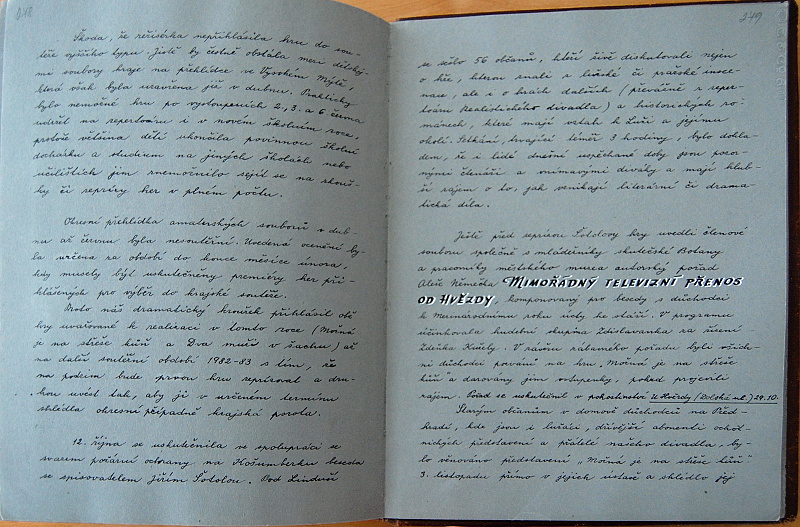 248
Škoda, že režisérka nepřihlásila hru do sou-
těže vyššího typu. Jistě by čestně obstála mezi dětský-
mi soubory kraje na přehlídce ve Vysokém Mýtě,
která však byla uzavřena již v dubnu. Prakticky
bylo nemožné hru po vystoupeních 2., 3. a 6. června
udržet na repertoáru i v novém školním roce,
protože většina dětí ukončila povinnou školní
docházku a studium na jiných školách nebo
učilištích jim znemožnilo sejít se na zkouš-
ky či reprízy her v plném počtu.
Okresní přehlídka amatérských souborů v dub-
nu až červnu byla nesoutěžní. Uvedená ocenění by-
la určena za období do konce měsíce února,
kdy musely být uskutečněny premiéry her při-
hlášených pro výběr do krajské soutěže.
Proto náš dramatický kroužek přihlásil obě
hry uvažované k realizaci v tomto roce (Možná
je na střeše kůň a Dva muži v šachu) až
na další soutěžní období 1982-83 s tím, že
na podzim bude první hru reprízovat a dru-
hou uvést tak, aby ji v určeném termínu
shlédla okresní případně krajská porota.
12. října se uskutečnila ve spolupráci se
svazem požární ochrany na Košumberku beseda
se spisovatelem Jiřím Šotolou. Pod Linduší
249
se sešlo 56 občanů, kteří živě diskutovali nejen
o hře, kterou znali z lužské či pražské insce-
nace, ale i o hrách dalších (převážně z reper-
toáru Realistického divadla) a historických ro-
mánech, které mají vztah k Luži a jejímu
okolí. Setkání, trvající téměř 3 hodiny, bylo dokla-
dem, že i lidé dnešní uspěchané doby jsou pozor-
nými čtenáři a vnímavými diváky a mají hlub-
ší zájem o to, jak vznikají literární či drama-
tická díla.
Ještě před reprízou Šotolovy hry uvedli členové
souboru společně s mládežníky skutečské Botany
a pracovníky městského muzea autorský pořad
Aleše Němečka MIMOŘÁDNÝ TELEVIZNÍ PŘENOS
OD HVĚZDY, komponovaný pro besedy s důchodci
k Mezinárodnímu roku úcty ke stáří. V programu
účinkovala hudební skupina Zdislavanka za řízení
Zdeňka Kužely. V závěru zábavného pořadu byli všich-
ni důchodci pozváni na hru „Možná je na střeše
kůň" a darovány jim vstupenky, pokud projevili
zájem. Pořad se uskutečnil v pohostinství U Hvězdy (Dolské ul.) 29.10.
Starým občanům v domově důchodců na Před-
hradí, kde jsou i lužáci, dřívější abonenti ochot-
nických představení a přátelé našeho divadla, by-
lo věnováno představení „Možná je na střeše kůň"
3. listopadu přímo v jejich ústavě a shlédlo jej